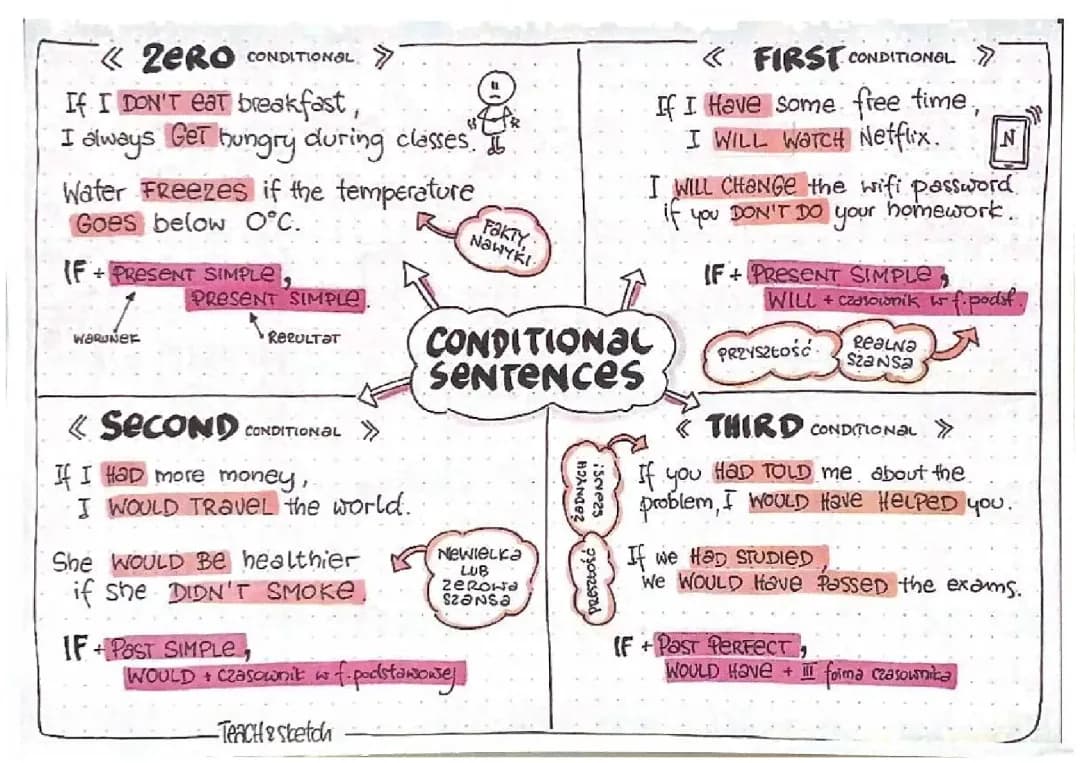 « ZERO CONDITIONAL »
If I DON'T eat breakfast,
I always GET hungry during classes.
Water FREEZES if the temperature
GOES below 0°C.
FAKTY,
NAWYKI
IF + PRESENT SIMPLE,
PRESENT SIMPLE.
WARUNEK
REZULTAT
« FIRST CONDITIONAL »
If I HAVE some free time,
I WILL WATCH Netflix.
N
I WILL CHANGE the wifi password
if you DON'T DO your homework.
IF + PRESENT SIMPLE,
WILL + czasownik w f. podst.
PRZYSZŁOŚĆ
REALNA
SZANSA
CONDITIONAL
SENTENCES
« SECOND CONDITIONAL »
If I HAD more money,
I WOULD TRAVEL the world.
She WOULD BE healthier
if she DIDN'T SMOKE.
NIEWIELKA
LUB
ZEROWA
SZANSA
IF + PAST SIMPLE,
WOULD + czasownik w f. podstawowej
« THIRD CONDITIONAL »
ŻADNYCH
SZANS!
If you HAD TOLD me about the
problem, I WOULD HAVE HELPED you.
PRZESZŁOŚĆ
If we HAD STUDIED,
we WOULD HAVE PASSED the exams.
IF + PAST PERFECT,
WOULD HAVE + III forma czasownika
TEACH & sketch